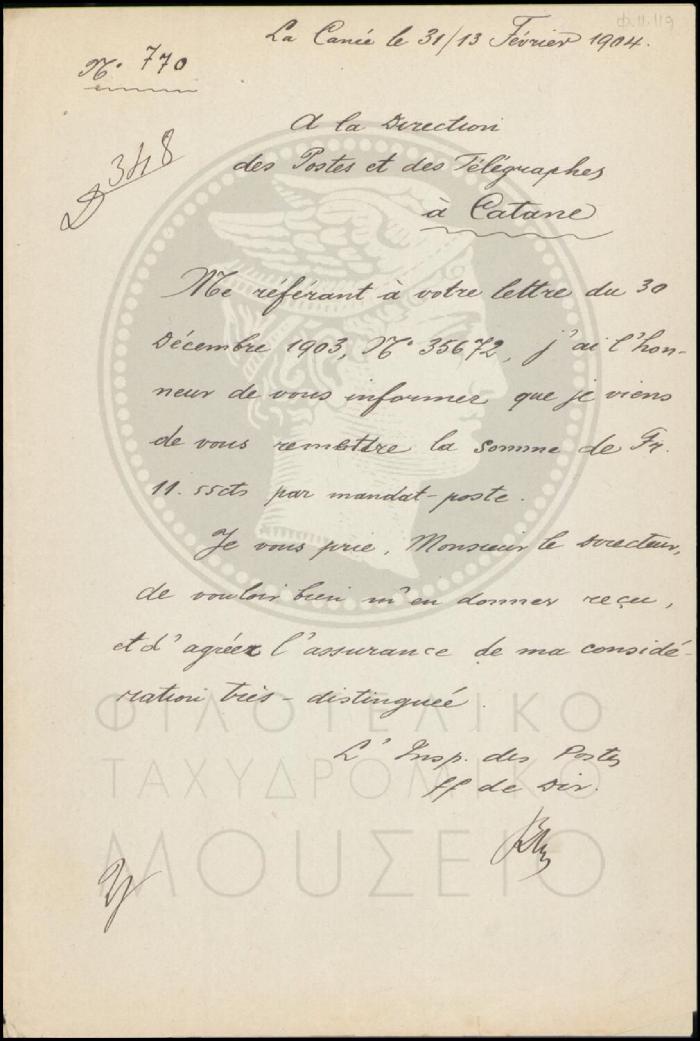 ф.11.119
La Canée le 31/13 Février 1904.
N° 770
348
A la Direction
des Postes et des Télégraphes
à Catane
Me référant à votre lettre du 30
Décembre 1903, N° 35672, j'ai l'hon-
neur de vous informer que je viens
de vous remettre la somme de Fr.
11.55cts par mandat-poste.
Je vous prie, Monsieur le Directeur,
de vouloir bien m'en donner reçu,
et d'agréer l'assurance de ma considé-
ration très-distinguée.
L'Insp. des Postes
ff de Dir.
ΦΙΛΟΤΕΛΙΚΟ
ΤΑΧΥΔΡΟΜΙΚΟ
ΜΟΥΣΕΙΟ